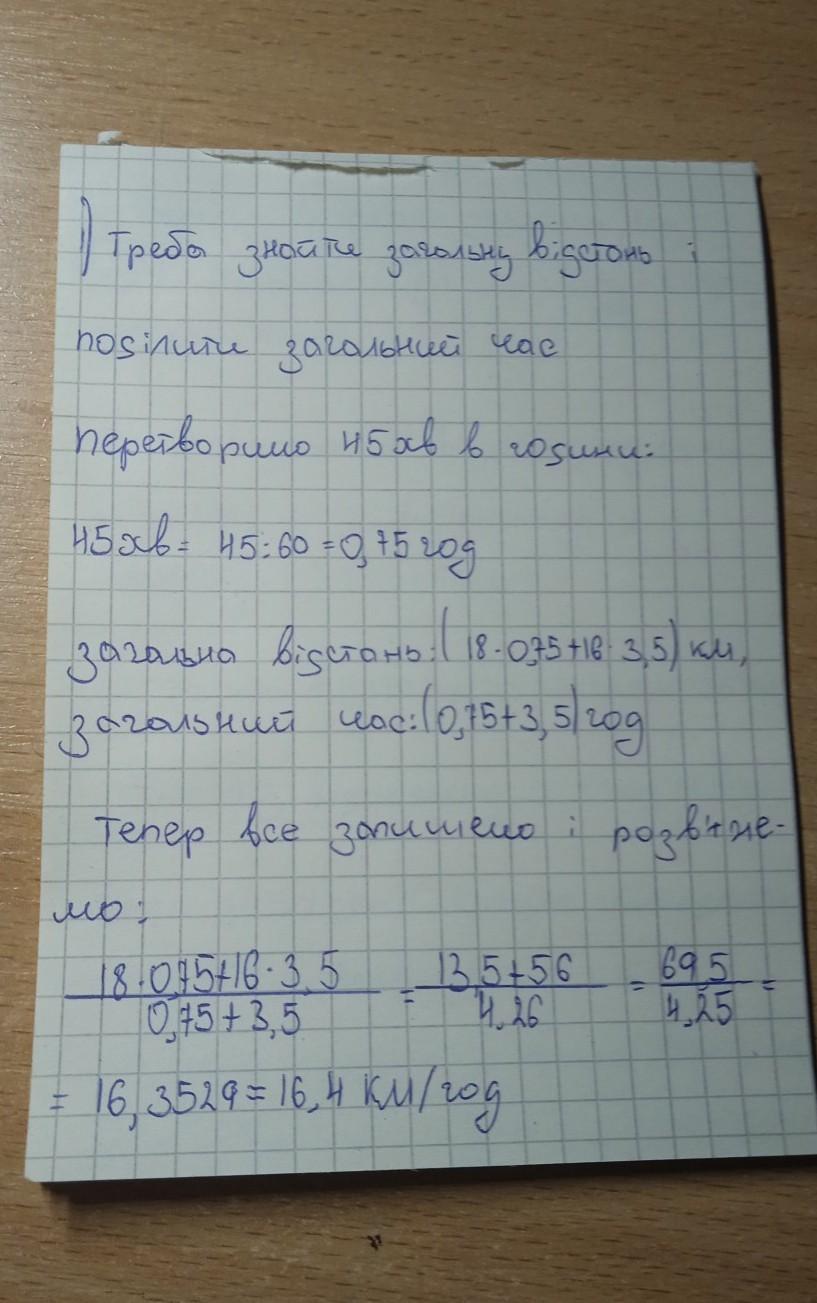 1) Треба знайти загальну відстань і
поділити загальний час
перетворимо 45хв в години:
45хв = 45:60 = 0,75 год
загальна відстань: (18·0,75+16·3,5) км,
загальний час: (0,75+3,5) год
Тепер все запишемо і розв'яже-
мо:
18·0,75+16·3,5 / 0,75+3,5 = 13,5+56 / 4,26 = 69,5 / 4,25 =
= 16,3529 = 16,4 км/год